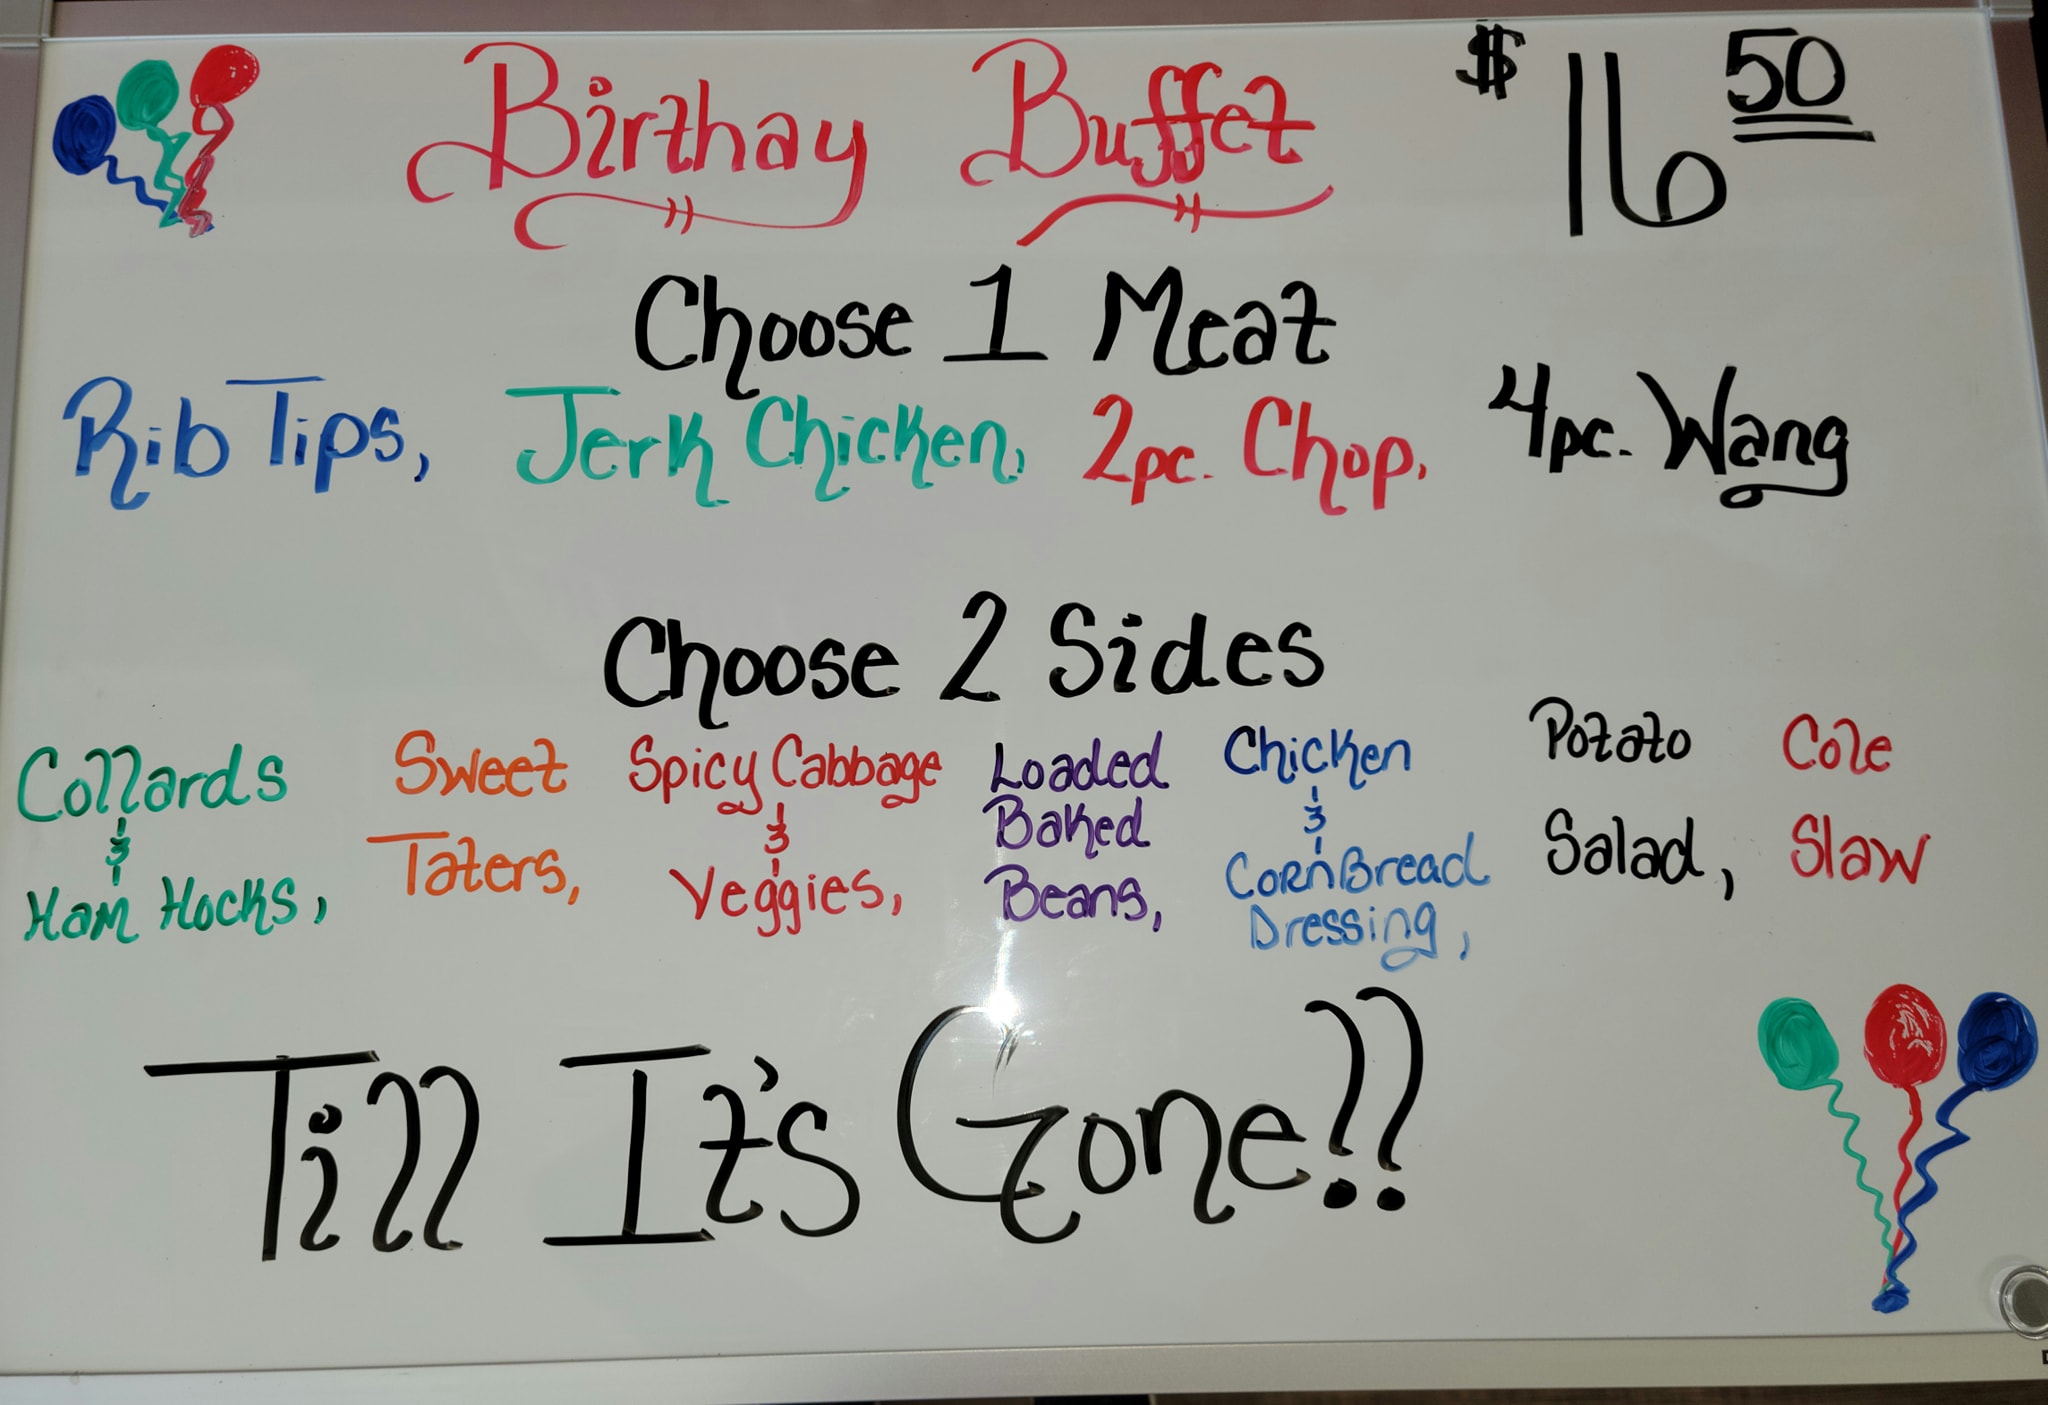 Birthay Buffet $16 50
Choose 1 Meat
Rib Tips, Jerk Chicken, 2pc. Chop, 4pc. Wang
Choose 2 Sides
Collards & Ham Hocks,
Sweet Taters,
Spicy Cabbage & Veggies,
Loaded Baked Beans,
Chicken & CornBread Dressing,
Potato Salad,
Cole Slaw
Till It's Gone!!